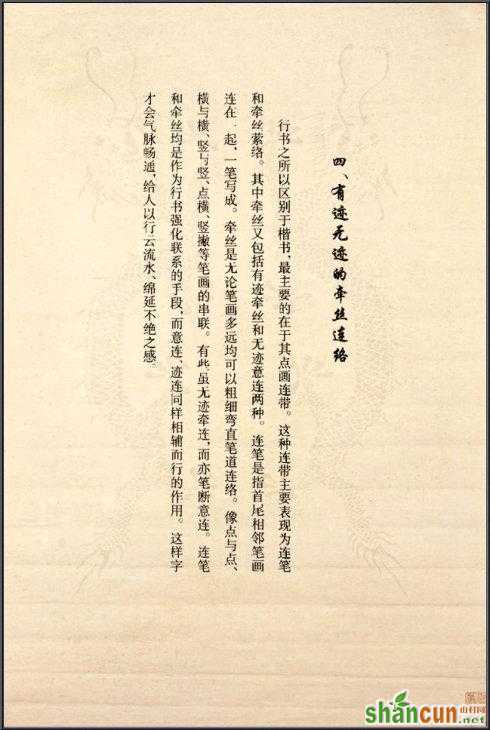 四、有迹无迹的牵丝连络
行书之所以区别于楷书，最主要的在于其点画连带。这种连带主要表现为连笔
和牵丝萦络。其中牵丝又包括有迹牵丝和无迹意连两种。连笔是指首尾相邻笔画
连在一起，一笔写成。牵丝是无论笔画多远均可以粗细弯直笔道连络。像点与点、
横与横、竖与竖、点横、竖撇等笔画的串联。有些虽无迹牵连，而亦笔断意连。连笔
和牵丝均是作为行书强化联系的手段，而意连、迹连同样相辅而行的作用。这样字
才会气脉畅通，给人以行云流水、绵延不绝之感
山村网
shancun
.net